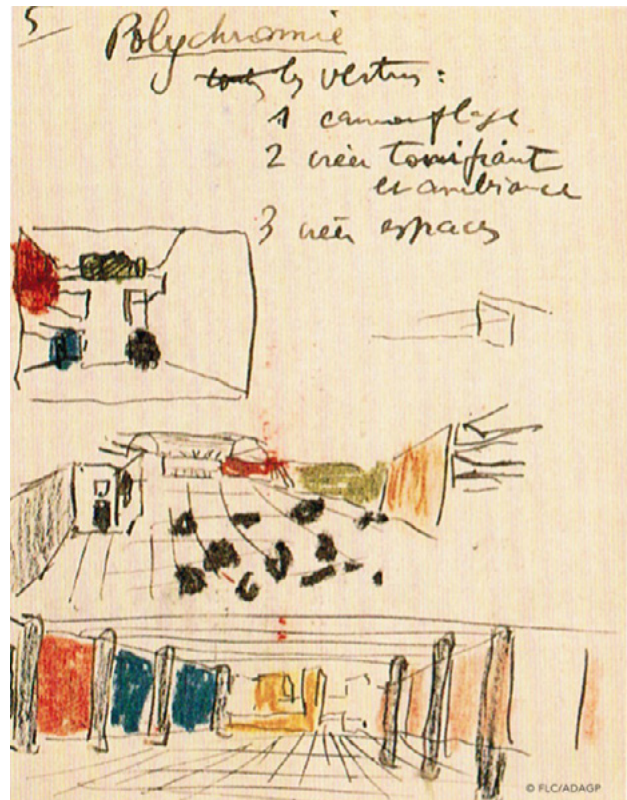 5
Polychromie
toutes les vertus :
1 camouflage
2 créer tonifiant
et ambiance
3 créer espaces
© FLC/ADAGP